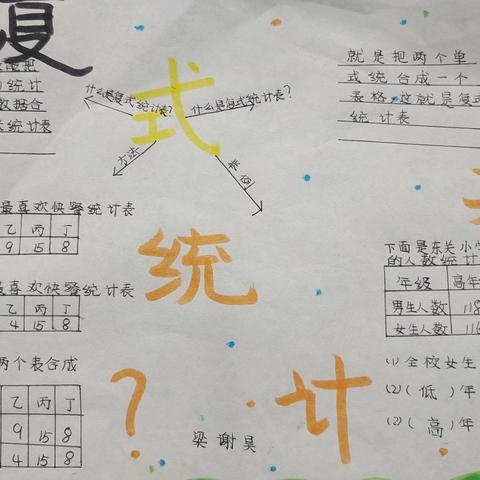 复
式
统
计
?
就是把两个单
式统合成一个
表格,这就是复式
统计表
把
统计
数据合
统计表
什么是复式统计表?
什么是复式统计表?
方法
举例
最喜欢快餐统计表
乙 丙 丁
9 15 8
最喜欢快餐统计表
乙 丙 丁
4 15 8
两个表合成
乙 丙 丁
9 15 8
4 15 8
下面是东关小学
的人数统计
年级 高年
男生人数 118
女生人数 116
(1)全校女生
(2)(低)年
(2)(高)年
梁谢昊